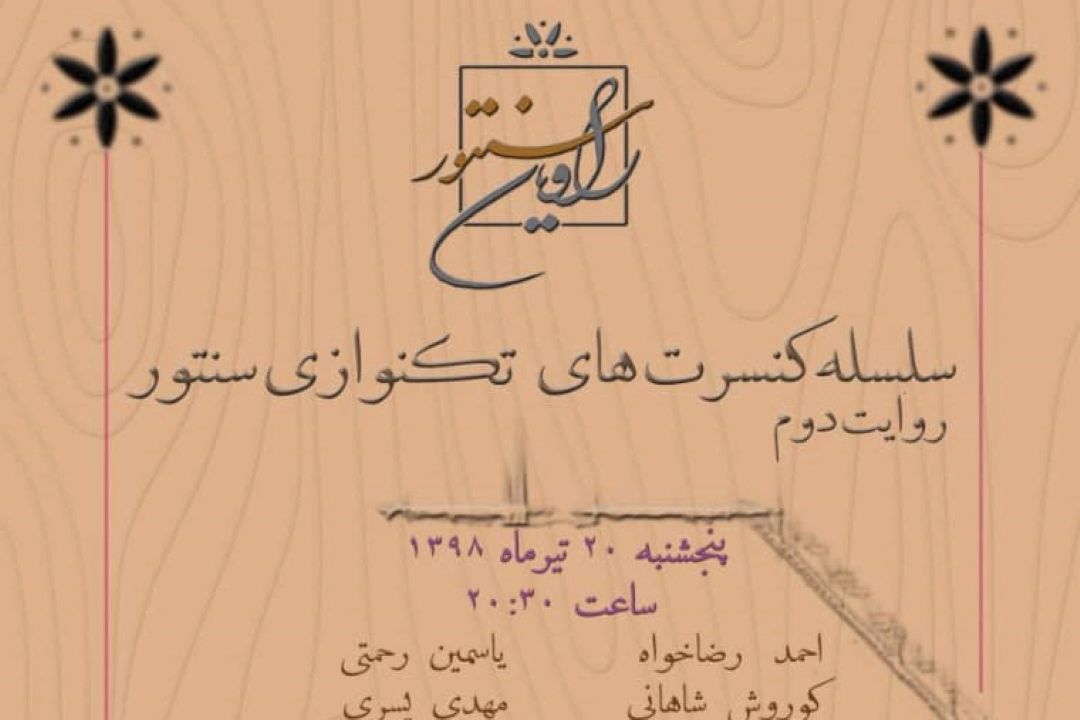 راویان سنتور
سلسله کنسرت‌های تکنوازی سنتور
روایت دوم
پنجشنبه ۲۰ تیرماه ۱۳۹۸
ساعت ۲۰:۳۰
احمد رضاخواه یاسمین رحمتی
کوروش شاهانی مهدی یسری